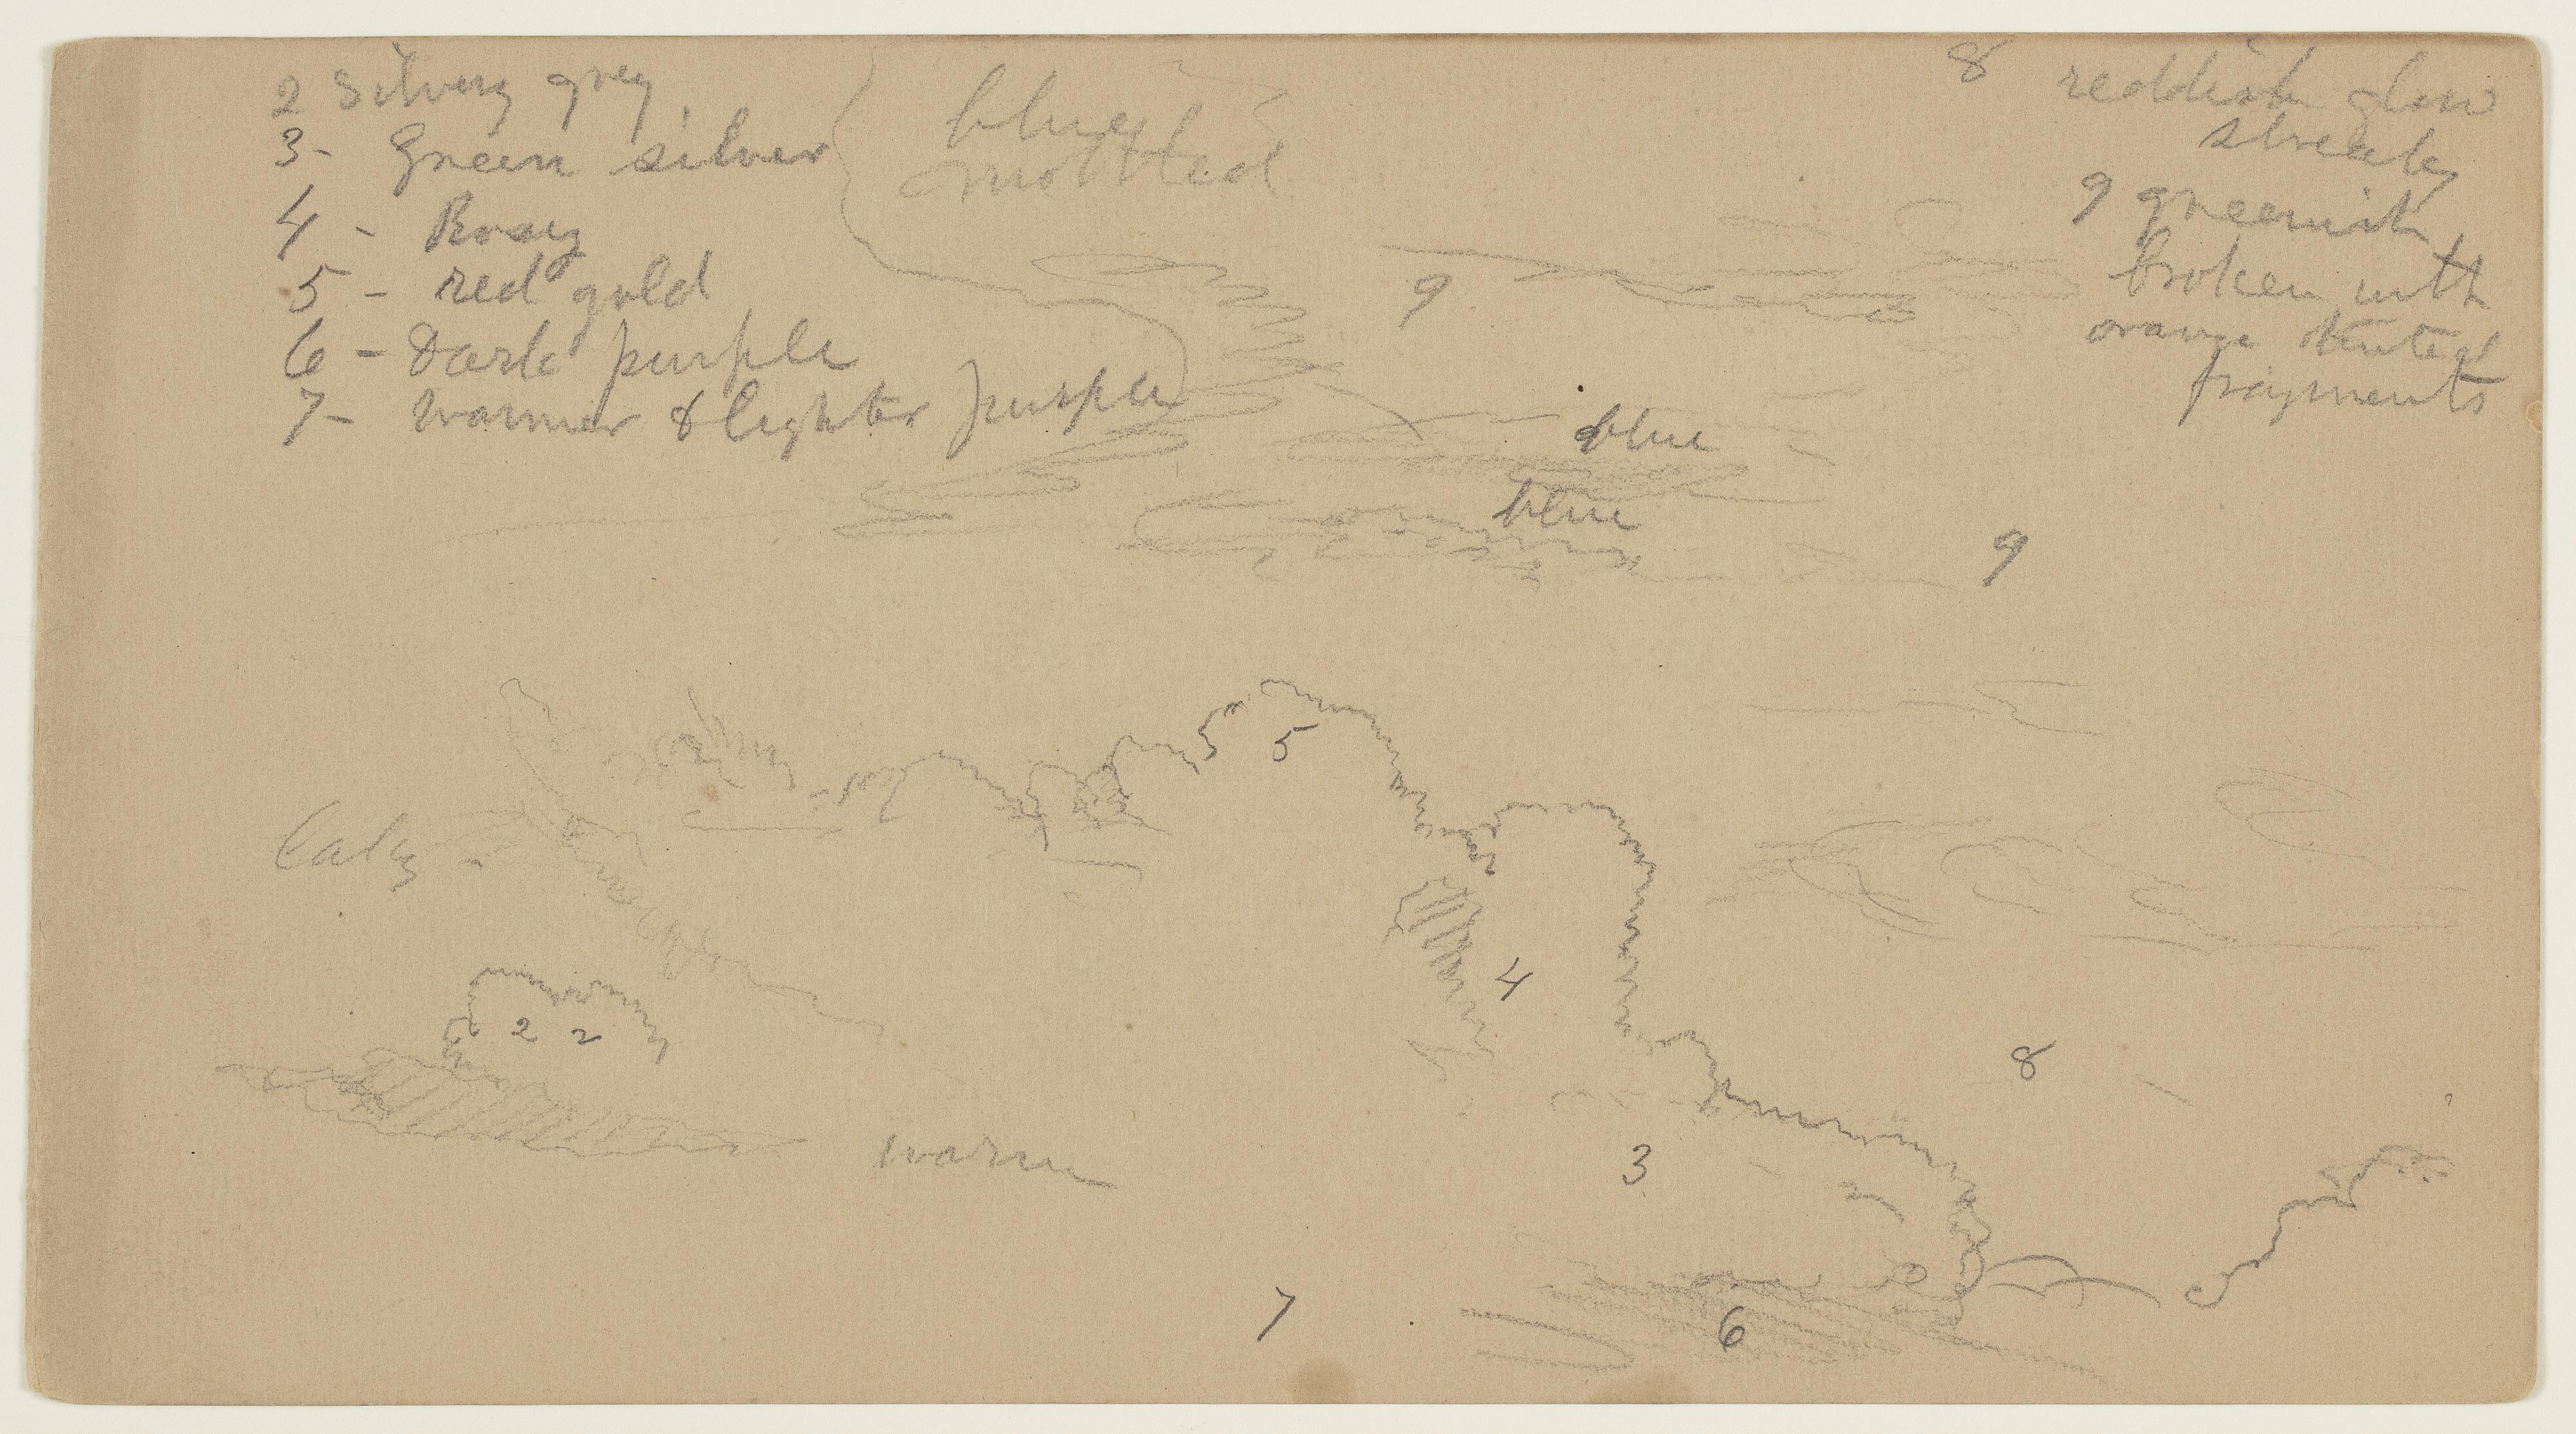 2 Silvery grey
3- Green silver
4 - Rosey
5 - red gold
6 - Dark purple
7- warmer & lighter purple
blue
mottled
8 reddish glow
streaky
9 greenish
broken with
orange tinted
fragments
9
blue
blue
9
5
4
2 2
8
warm
3
7
6